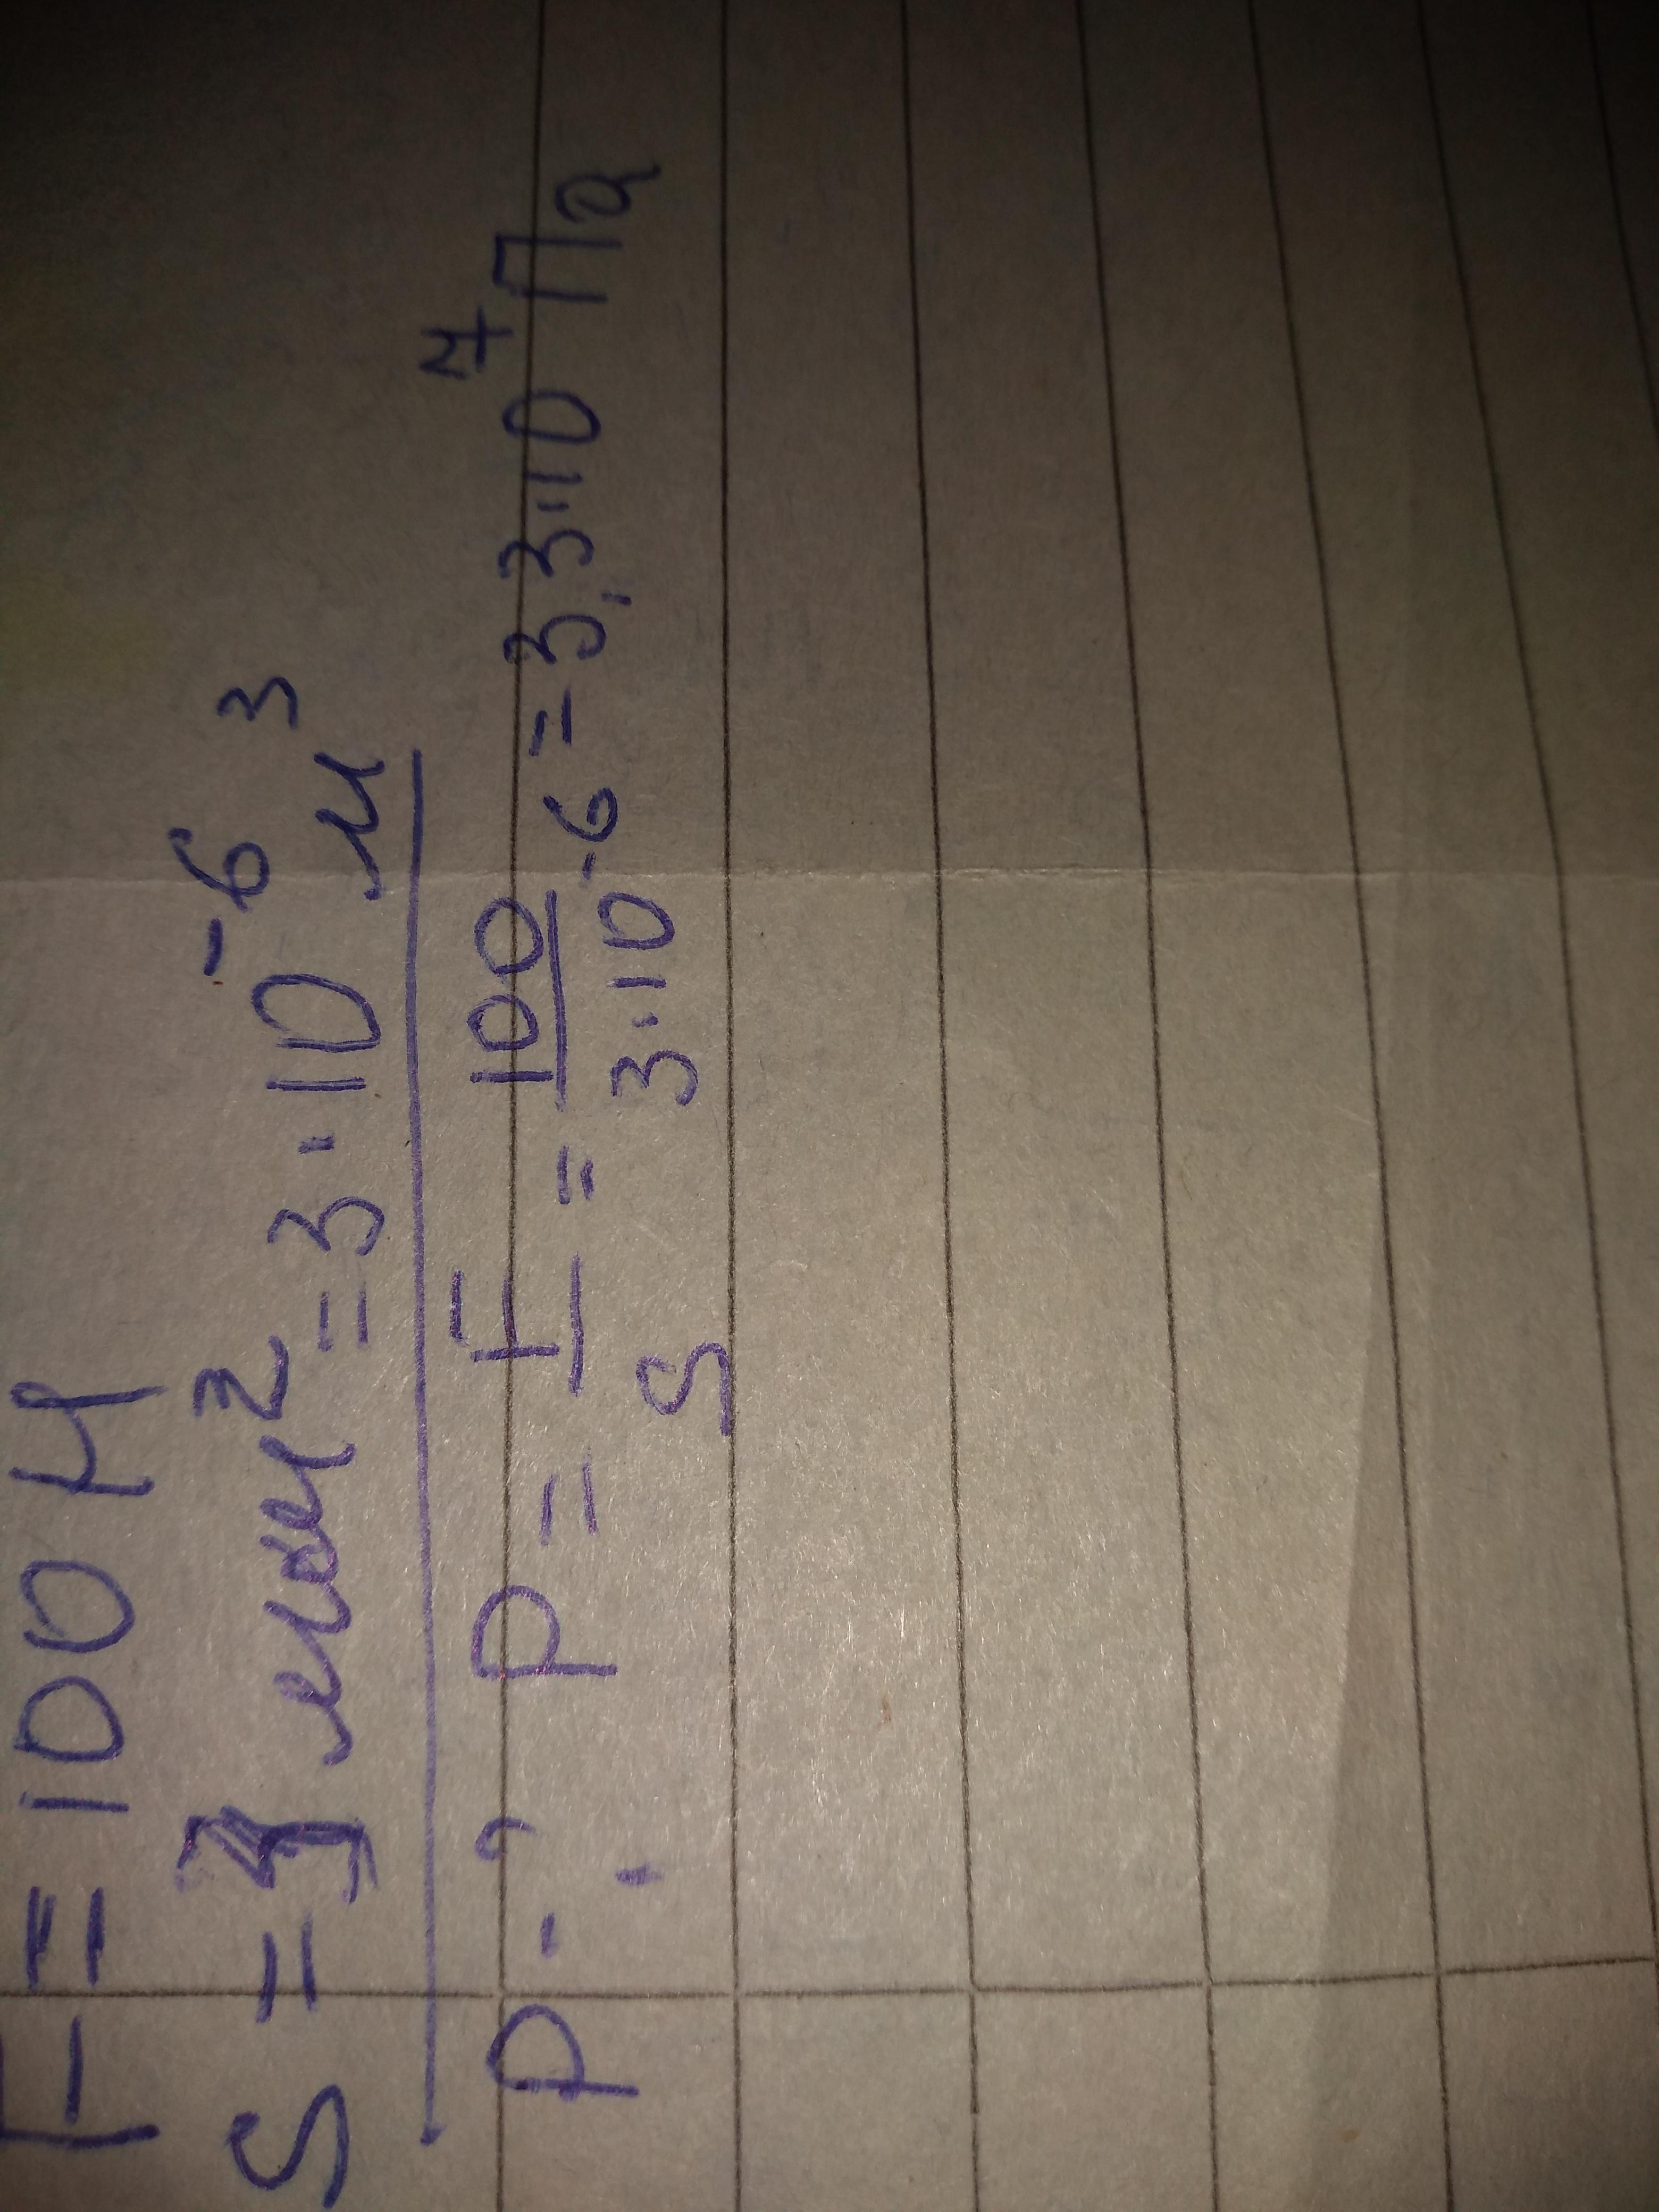 F = 100 Н
S = 3 мм² = 3·10⁻⁶ м³
P - ? P = F/S = 100/3·10⁻⁶ = 3,3·10⁷ Па